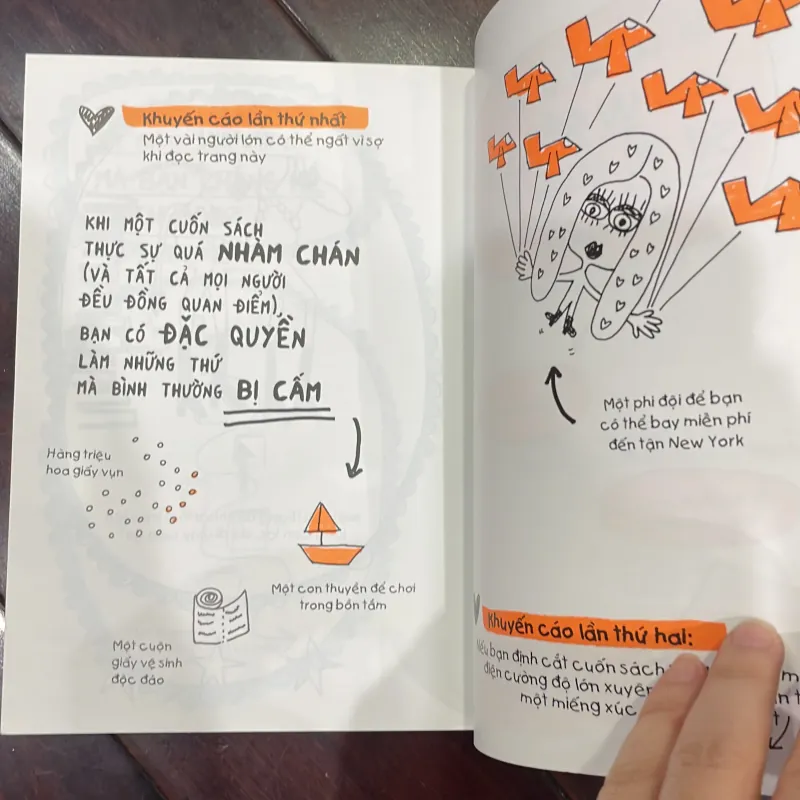 Khuyến cáo lần thứ nhất
Một vài người lớn có thể ngất vì sợ
khi đọc trang này
KHI MỘT CUỐN SÁCH
THỰC SỰ QUÁ NHÀM CHÁN
(VÀ TẤT CẢ MỌI NGƯỜI
ĐỀU ĐỒNG QUAN ĐIỂM),
BẠN CÓ ĐẶC QUYỀN
LÀM NHỮNG THỨ
MÀ BÌNH THƯỜNG BỊ CẤM
Hàng triệu
hoa giấy vụn
Một con thuyền để chơi
trong bồn tắm
Một cuộn
giấy vệ sinh
độc đáo
Một phi đội để bạn
có thể bay miễn phí
đến tận New York
Khuyến cáo lần thứ hai:
Nếu bạn định cắt cuốn sách
điện cường độ lớn xuyên
một miếng xúc